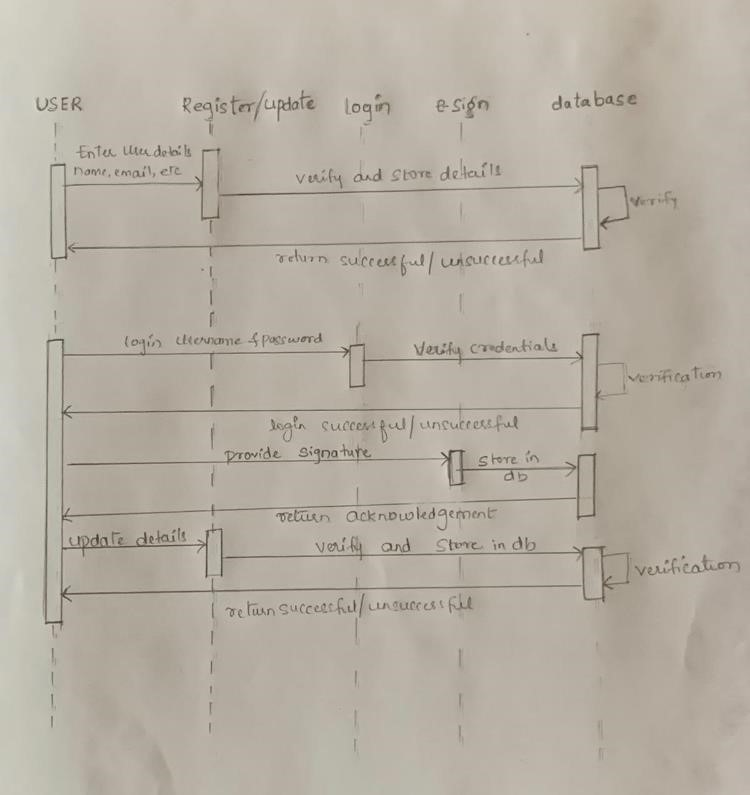 USER Register/update login e-sign database
Enter User details
name, email, etc
verify and store details
verify
return successful/unsuccessful
login username & password
verify credentials
verification
login successful/unsuccessful
provide signature
store in
db
return acknowledgement
update details
verify and store in db
verification
return successful/unsuccessful